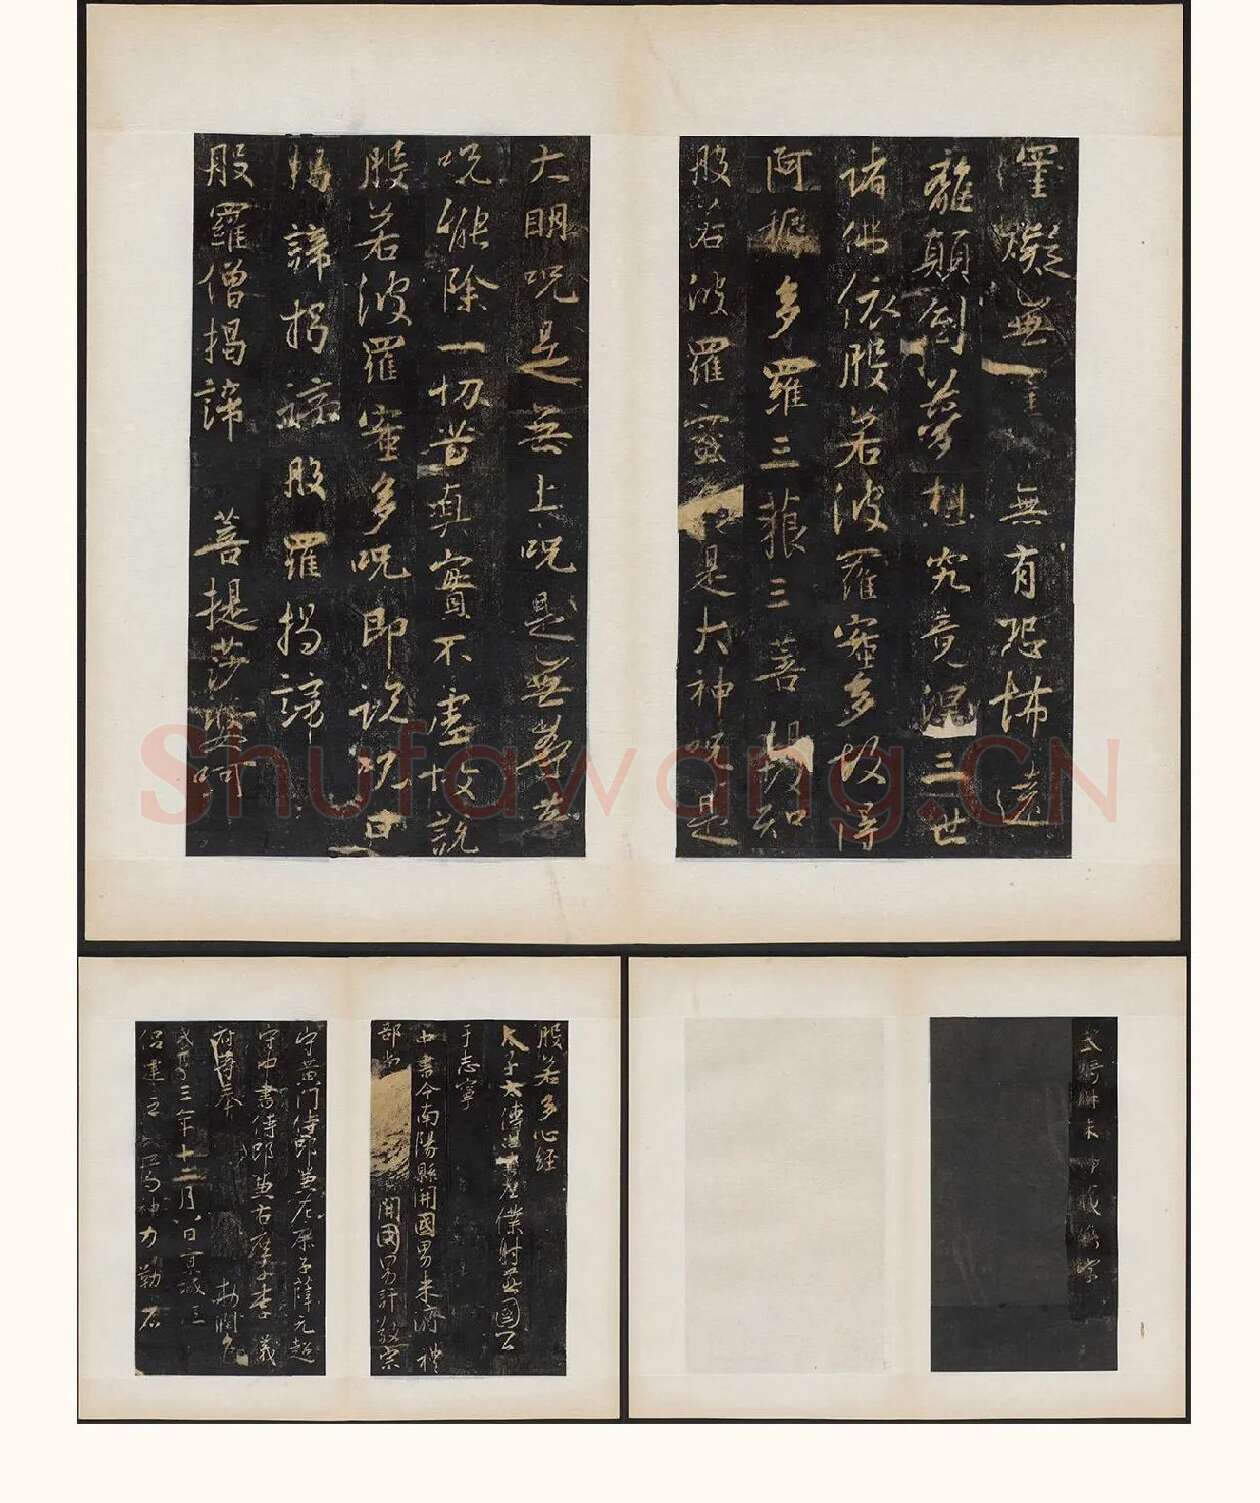 罣礙無罣 無有恐怖遠
離顛倒夢想究竟涅 三世
諸佛依般若波羅蜜多故得
阿耨多羅三藐三菩提故知
般若波羅蜜 是大神咒是
大明咒是無上咒是無等等
咒能除一切苦真實不虛故說
般若波羅蜜多咒即說咒曰
揭諦揭諦 般羅揭諦
般羅僧揭諦 菩提莎婆呵
般若多心經
太子太傅尚書左僕射燕國公
于志寧
中書令南陽縣開國男来濟 禮
部尚 開國男許敬宗
守黃門侍郎兼左庶子薛元超
守中書侍郎兼右庶子李義
府等奉 勅潤色
三年十二月八日京城
侣建立 神力勒石
武騎 朱 藏鐫字
Shufawang.CN